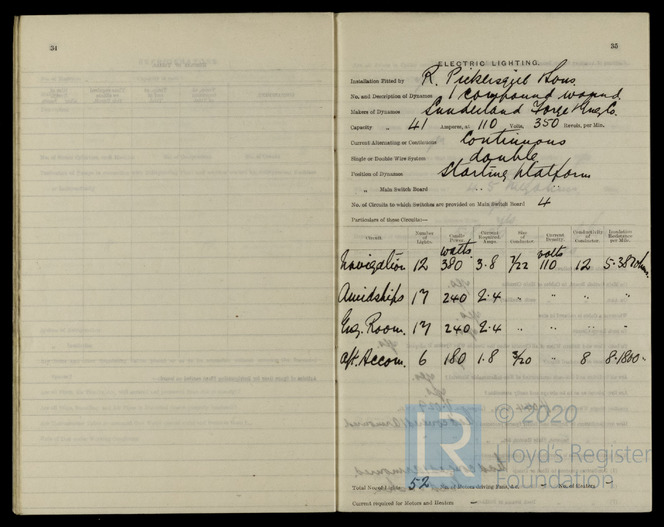 34
35
ELECTRIC LIGHTING.
Installation Fitted by R. Pickersgill & Sons
No. and Description of Dynamos 1 Compound wound
Makers of Dynamos Sunderland Forge & Eng. Co.
Capacity „ 41 Amperes, at 110 Volts, 350 Revols. per Min.
Current Alternating or Continuous Continuous
Single or Double Wire System double
Position of Dynamos Starting platform
„ Main Switch Board „ „
No. of Circuits to which Switches are provided on Main Switch Board 4
Particulars of these Circuits:—
Circuit. Number of Lights. Candle Power. watts Current Required. Amps. Size of Conductor. Current Density. volts Conductivity of Conductor. Insulation Resistance per Mile.
Navigation 12 380 3.8 7/22 110 12
Amidships 17 240 2.4 „ „ „ „
Eng. Room. 17 240 2.4 „ „ „ „
Aft. Accom. 6 180 1.8 3/20 „ 8
Total No. of Lights 52 No. of Motors driving Fans, &c. No. of Heaters
Current required for Motors and Heaters –
© 2020
LR
Lloyd's Register
Foundation